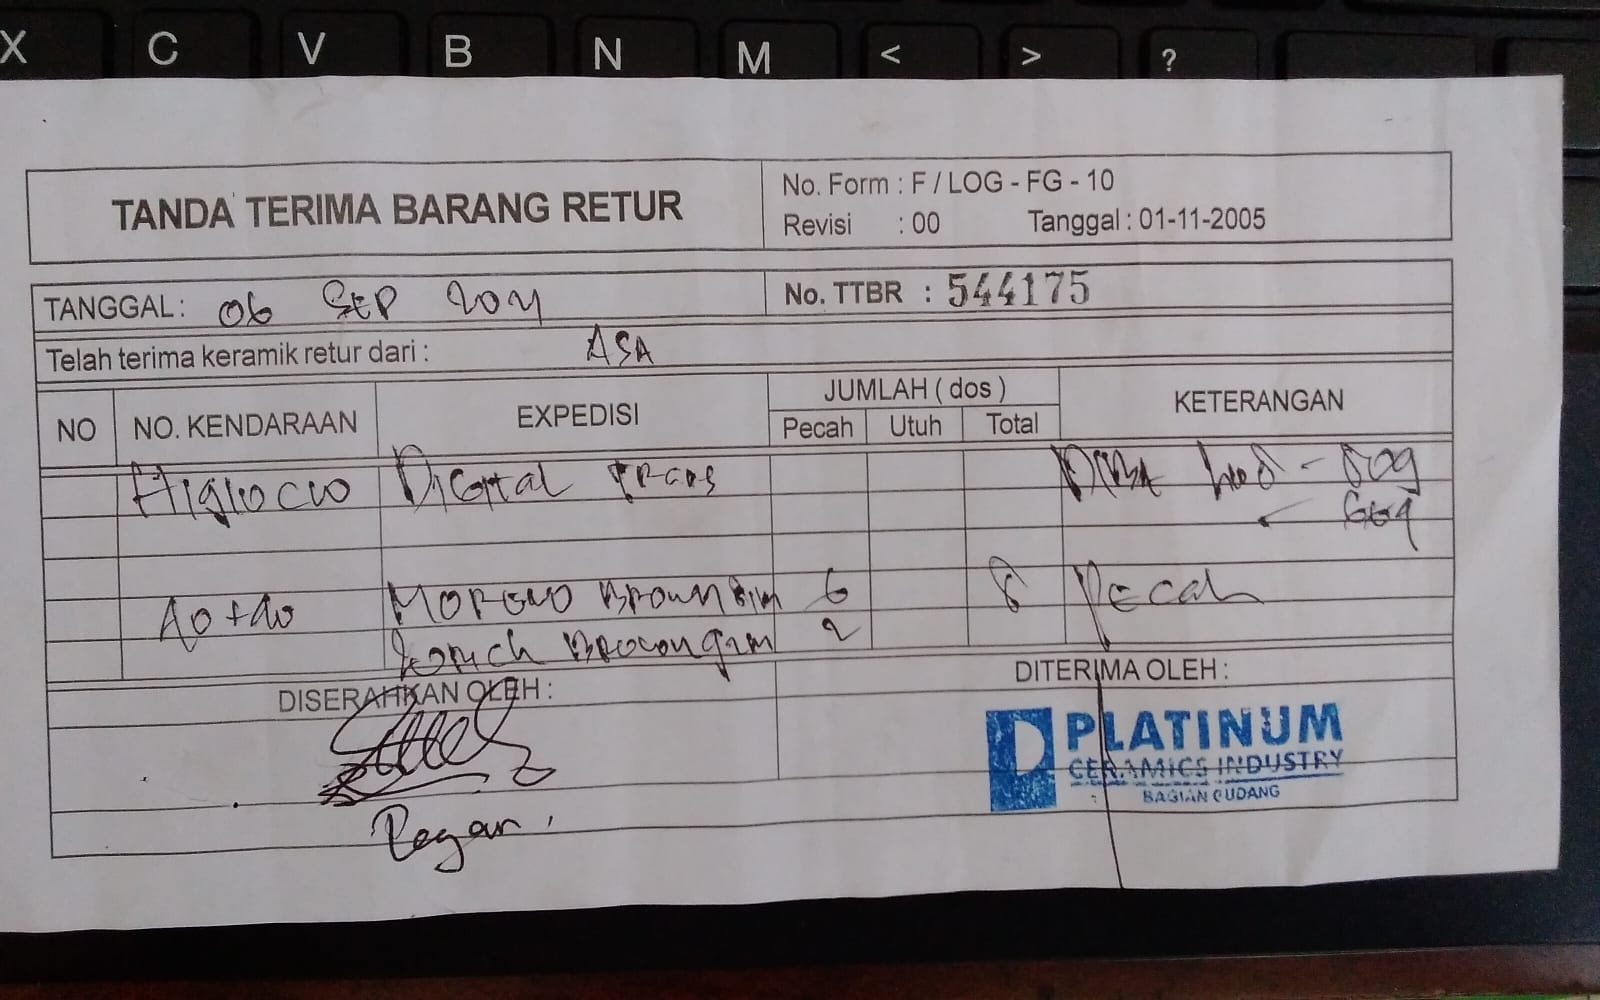 X C V B N M < > ?
TANDA TERIMA BARANG RETUR
No. Form : F / LOG - FG - 10
Revisi : 00 Tanggal : 01-11-2005
TANGGAL : 06 SEP 2021
No. TTBR : 544175
Telah terima keramik retur dari : ASA
NO NO. KENDARAAN EXPEDISI JUMLAH ( dos ) KETERANGAN
Pecah Utuh Total
Digital Trans
40 + 40 Moreno Brown 6 8 Pecah
2
DISERAHKAN OLEH : DITERIMA OLEH :
PLATINUM
CERAMICS INDUSTRY
BAGIAN GUDANG